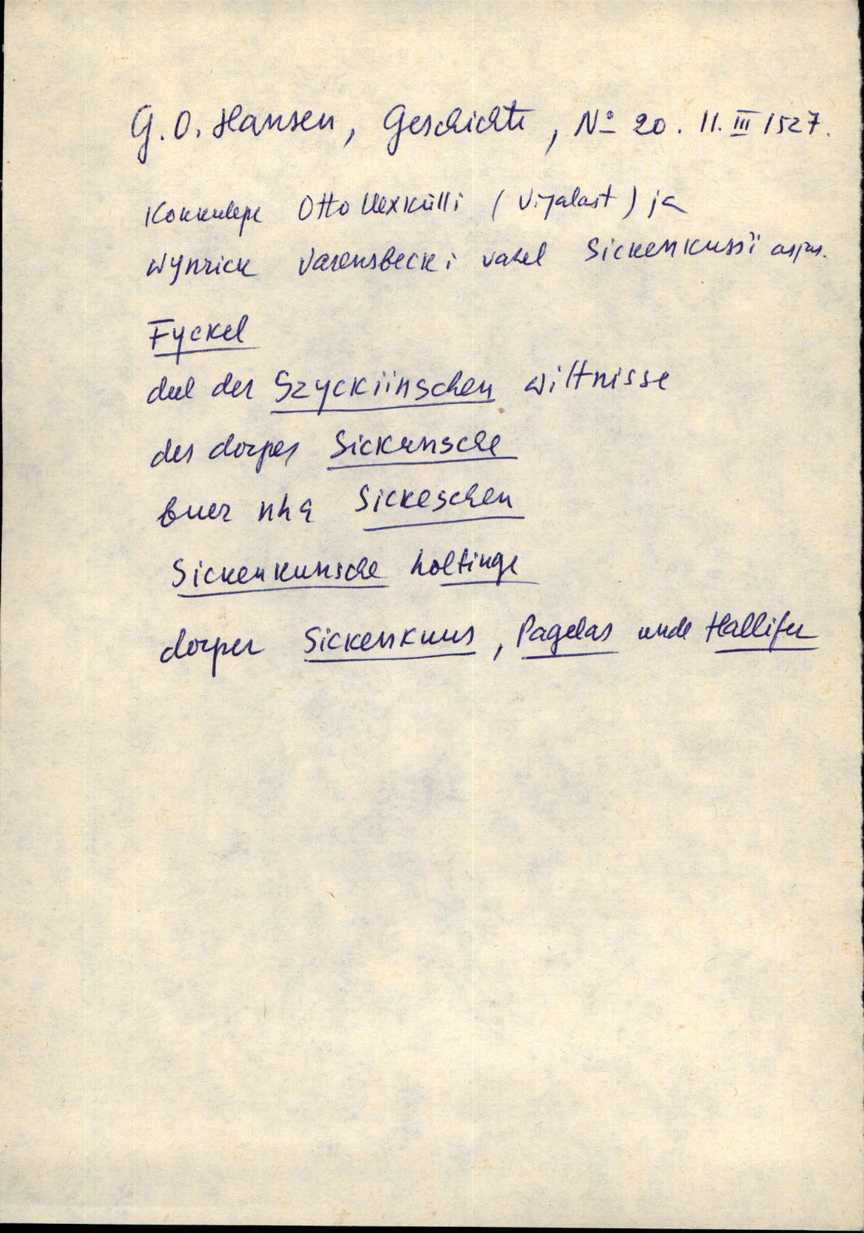 G. O. Hansen, Geschichte, № 20. 11. III 1527.
Kokkulepe Otto Uexkülli (Vijalast) ja
Wynrick Varensbecki vahel Sickenkussi asjus.
Fyckel
deel der Szyckiinschen wiltnisse
des dorpes Sickensche
buer nha Sickeschen
Sickenkunsche holtinge
dorper Sickenkuus, Pagelas unde Hallifer